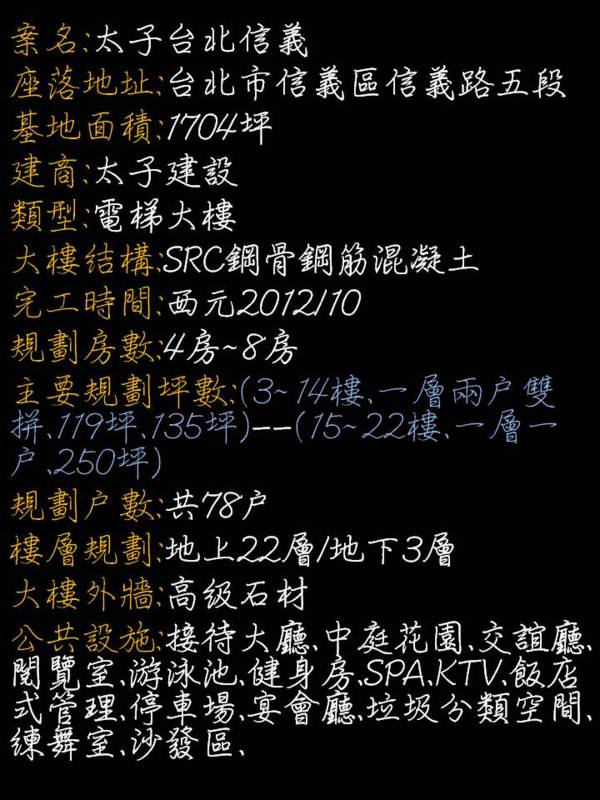 案名:太子台北信義
座落地址:台北市信義區信義路五段
基地面積:1704坪
建商:太子建設
類型:電梯大樓
大樓結構:SRC鋼骨鋼筋混凝土
完工時間:西元2012/10
規劃房數:4房~8房
主要規劃坪數:(3~14樓、一層兩户雙
拼、119坪、135坪)--(15~22樓、一層一
户、250坪)
規劃户數:共78户
樓層規劃:地上22層/地下3層
大樓外牆:高級石材
公共設施:接待大廳、中庭花園、交誼廳、
閱覽室、游泳池、健身房、SPA、KTV、飯店
式管理、停車場、宴會廳、垃圾分類空間、
練舞室、沙發區、